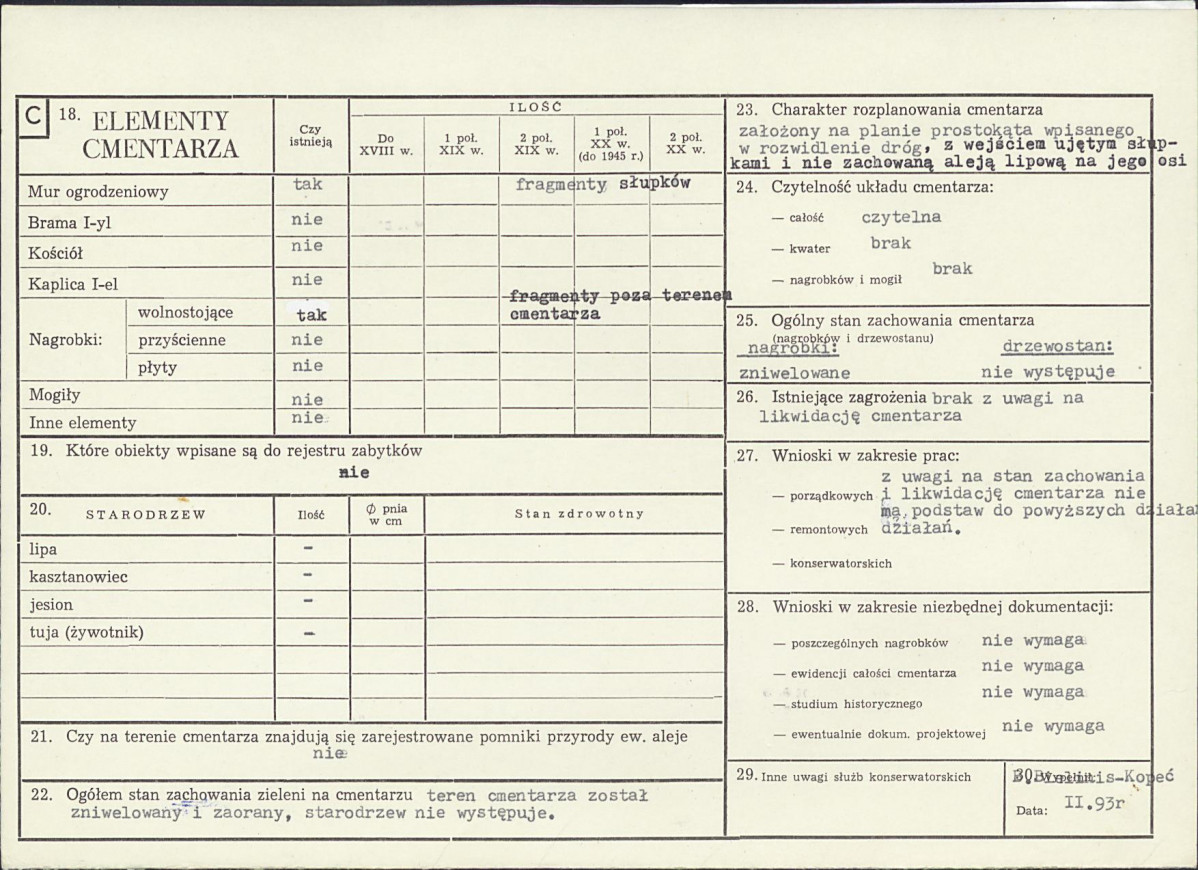 C 18. ELEMENTY CMENTARZA
Czy istnieją
ILOŚĆ
Do XVIII w.
1 poł. XIX w.
2 poł. XIX w.
1 poł. XX w. (do 1945 r.)
2 poł. XX w.
Mur ogrodzeniowy tak fragmenty słupków
Brama I-yl nie
Kościół nie
Kaplica I-el nie
Nagrobki:
wolnostojące tak fragmenty poza terenem
cmentarza
przyścienne nie
płyty nie
Mogiły nie
Inne elementy nie
19. Które obiekty wpisane są do rejestru zabytków
nie
20. STARODRZEW Ilość Ø pnia w cm Stan zdrowotny
lipa -
kasztanowiec -
jesion -
tuja (żywotnik) -
21. Czy na terenie cmentarza znajdują się zarejestrowane pomniki przyrody ew. aleje
nie
22. Ogółem stan zachowania zieleni na cmentarzu teren cmentarza został
zniwelowany i zaorany, starodrzew nie występuje.
23. Charakter rozplanowania cmentarza
założony na planie prostokąta wpisanego
w rozwidlenie dróg, z wejściem ujętym słup-
kami i nie zachowaną aleją lipową na jego osi
24. Czytelność układu cmentarza:
— całość czytelna
— kwater brak
— nagrobków i mogił brak
25. Ogólny stan zachowania cmentarza
(nagrobków i drzewostanu)
nagrobki: drzewostan:
zniwelowane nie występuje
26. Istniejące zagrożenia brak z uwagi na
likwidację cmentarza
27. Wnioski w zakresie prac:
z uwagi na stan zachowania
— porządkowych i likwidację cmentarza nie
mą podstaw do powyższych działa
— remontowych działań.
— konserwatorskich
28. Wnioski w zakresie niezbędnej dokumentacji:
— poszczególnych nagrobków nie wymaga
— ewidencji całości cmentarza nie wymaga
— studium historycznego nie wymaga
— ewentualnie dokum. projektowej nie wymaga
29. Inne uwagi służb konserwatorskich
30. Wypełnił: -Kopeć
Data: II.93r